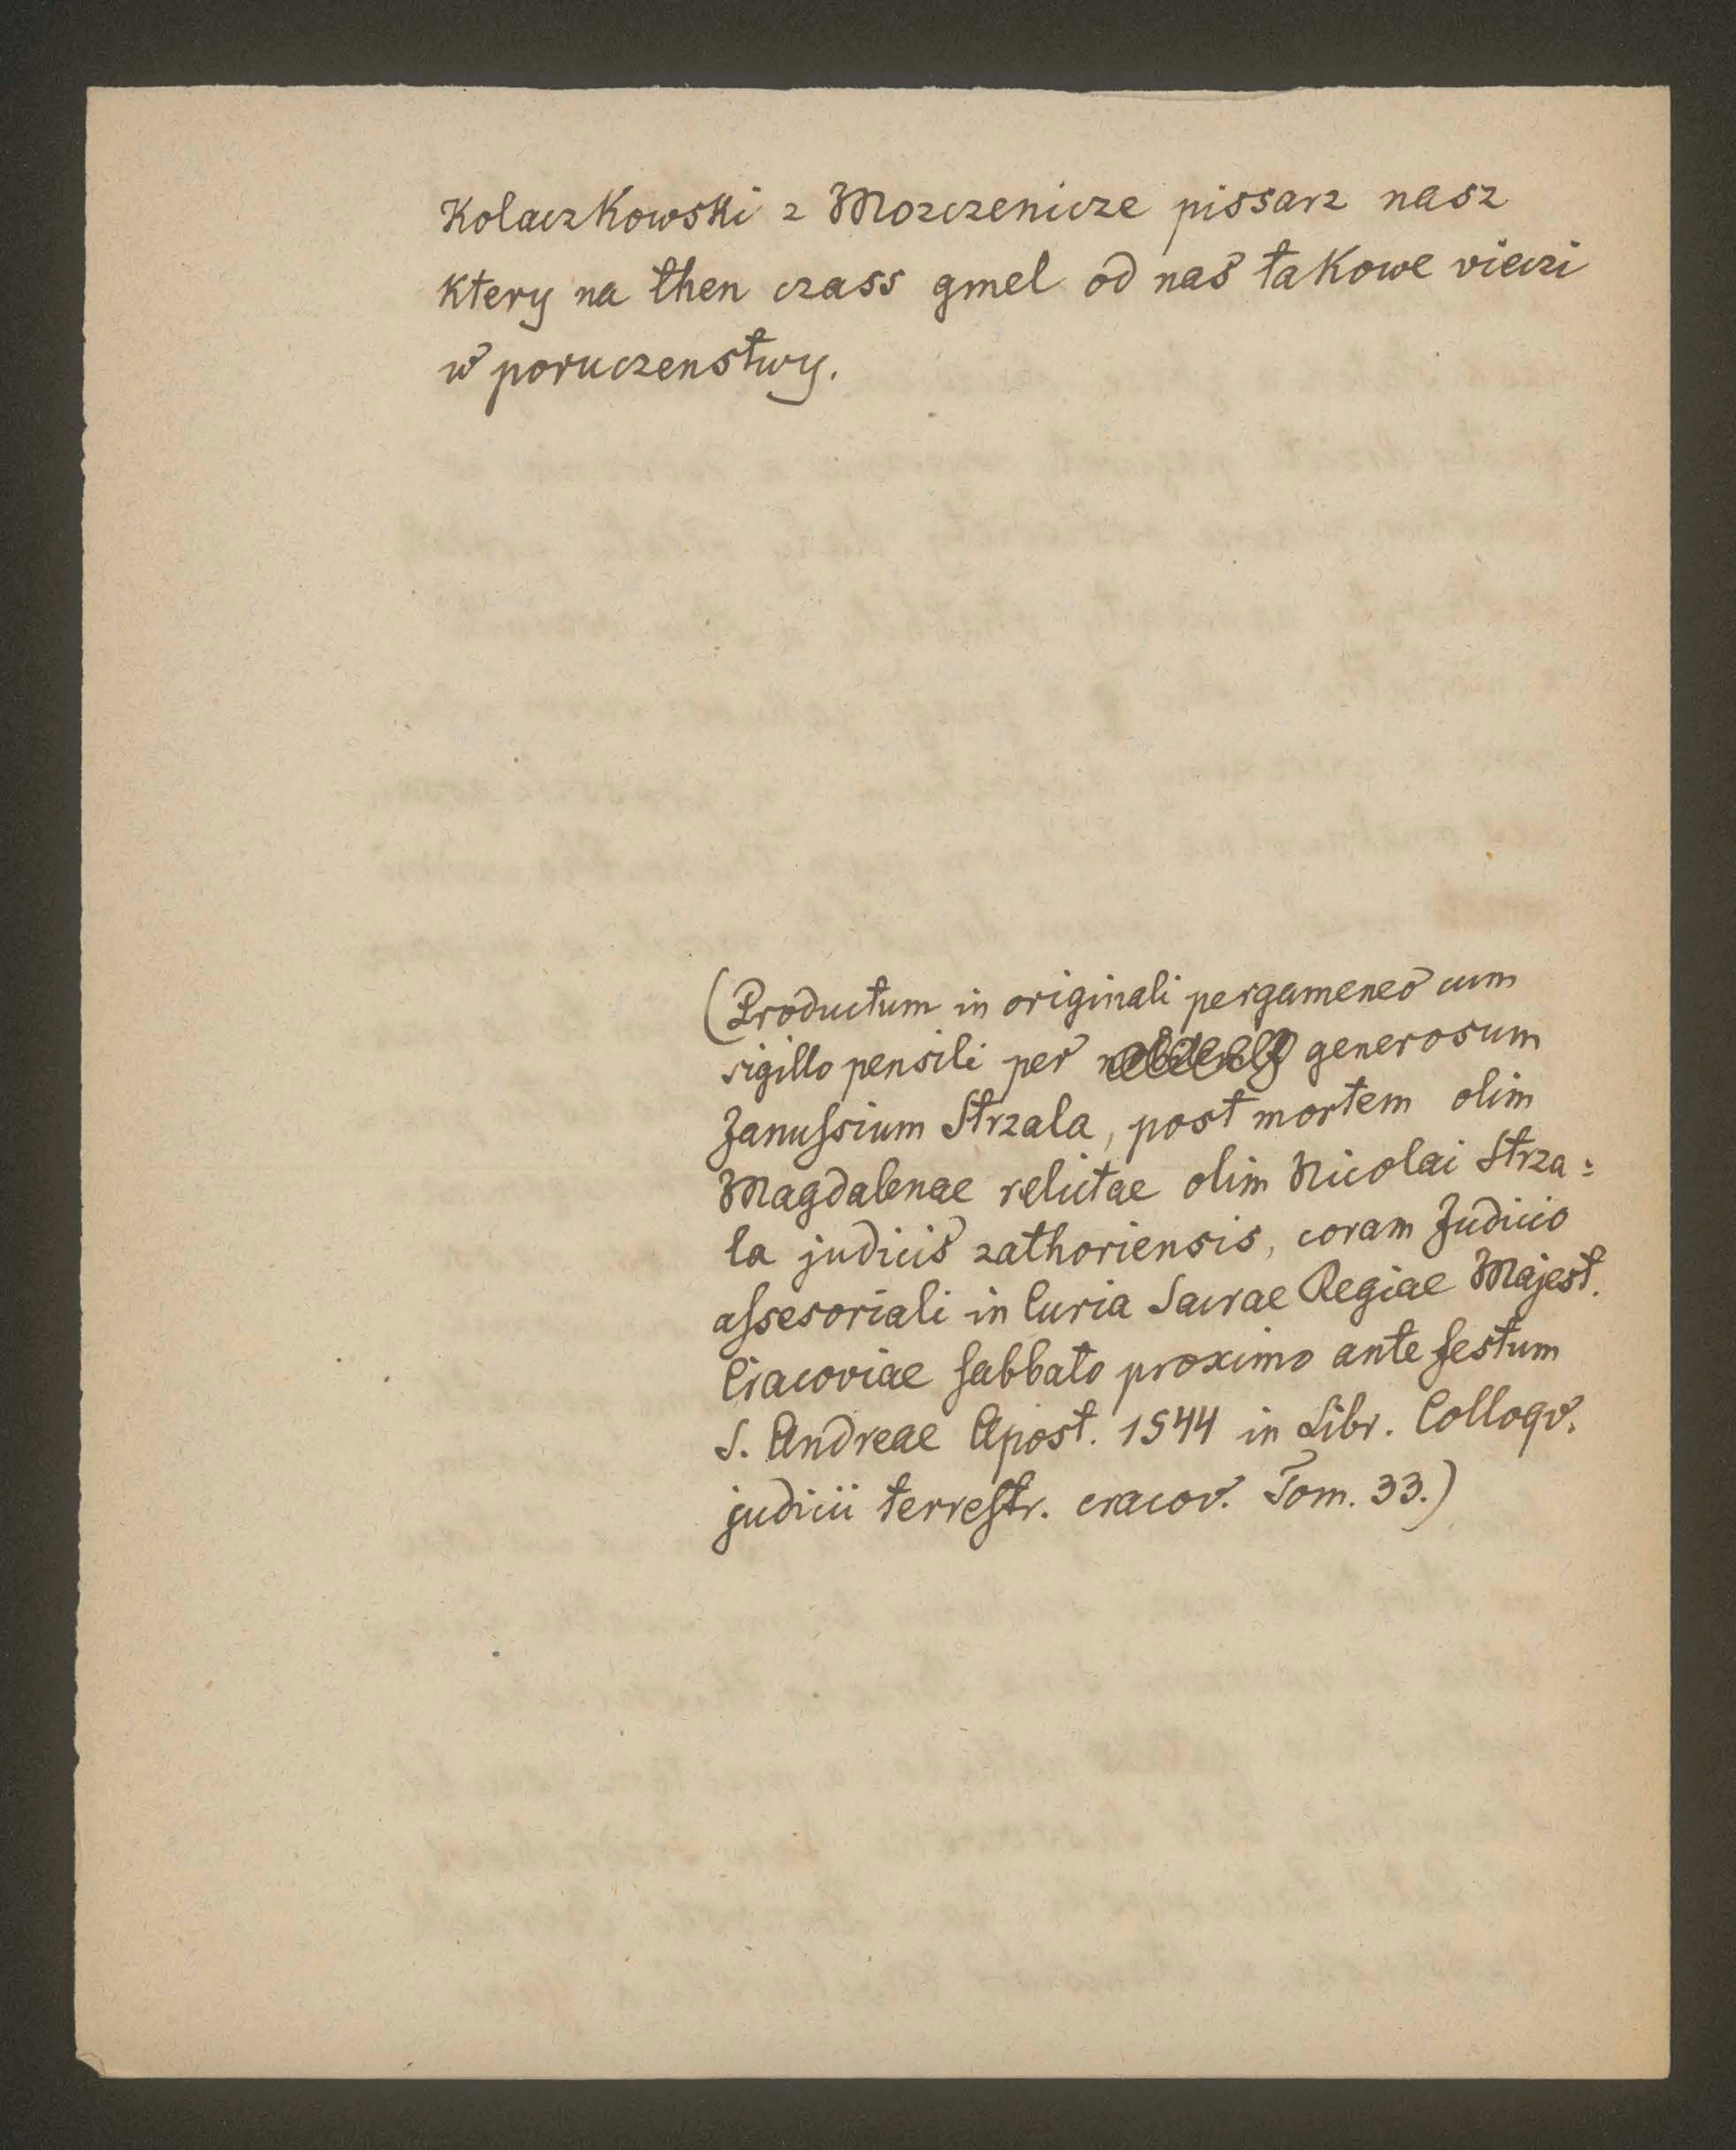 Kolaczkowski z Mozczenicze pissarz nasz
ktery na then czass gmel od nas takowe vieczi
w poruczenstwy.
(Productum in originali pergameneo cum
sigillo pensili per generosum
Januſsium Strzala, post mortem olim
Magdalenae relictae olim Nicolai Strza=
la judicis zathoriensis, coram Judicio
aſsesoriali in Curia Sacrae Regiae Majest.
Cracoviae ſabbato proximo ante festum
S. Andreae Apost. 1544 in Libr. Colloqv.
judicii terreſtr. cracov. Tom. 33.)